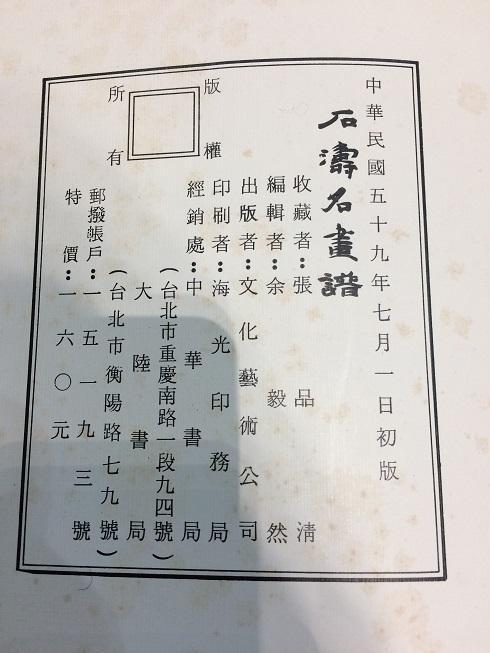 中華民國五十九年七月一日初版
石濤名畫譜
收藏者：張品清
編輯者：余毅然
出版者：文化藝術公司
印刷者：海光印務局
經銷處：中華書局
(台北市重慶南路一段九四號)
大陸書局
(台北市衡陽路七九號)
郵撥帳戶：一五一九三號
特價：一六〇元
版權所有